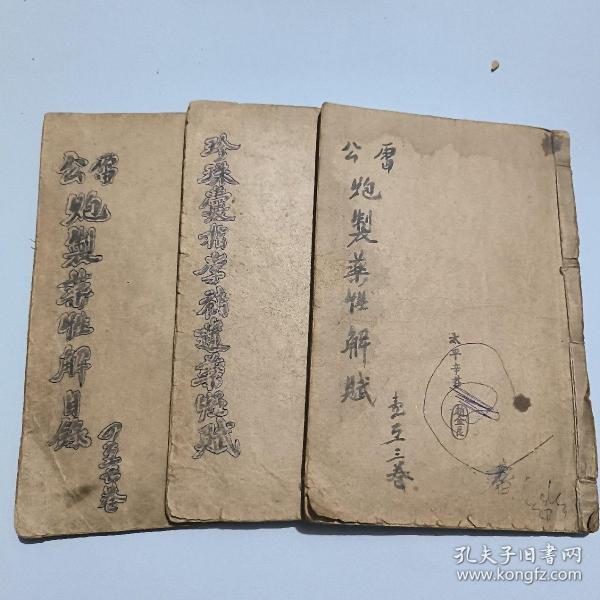 雷公
炮製藥性解賦
壹至三卷
太平
珍珠囊指掌補遺藥性賦
雷公
炮製藥性解目錄
四至六卷
孔夫子旧书网
www.kongfz.com